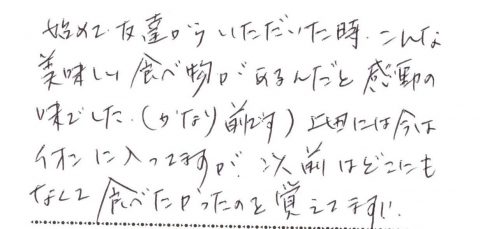 始めて友達からいただいた時、こんな
美味しい食べ物があるんだと感動の
味でした。(かなり前です)上田には今は
イオンに入ってますが、以前はどこにも
なくて食べたかったのを覚えてます。